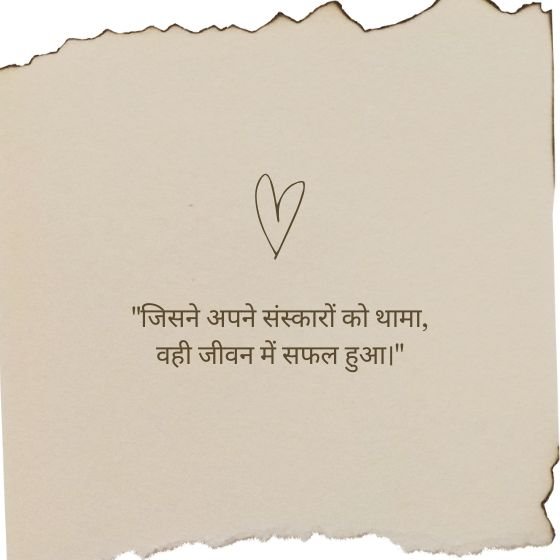 "जिसने अपने संस्कारों को थामा,
वही जीवन में सफल हुआ।"